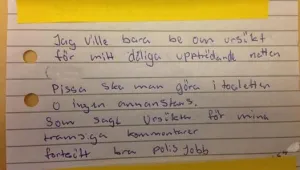 Jag ville bara be om ursäkt
för mitt dåliga uppträdande natten
(
Pissa ska man göra i toaletten
o ingen annanstans.
Som sagt Ursäkta för mina
tramsiga kommentarer
fortsätt bra polis jobb